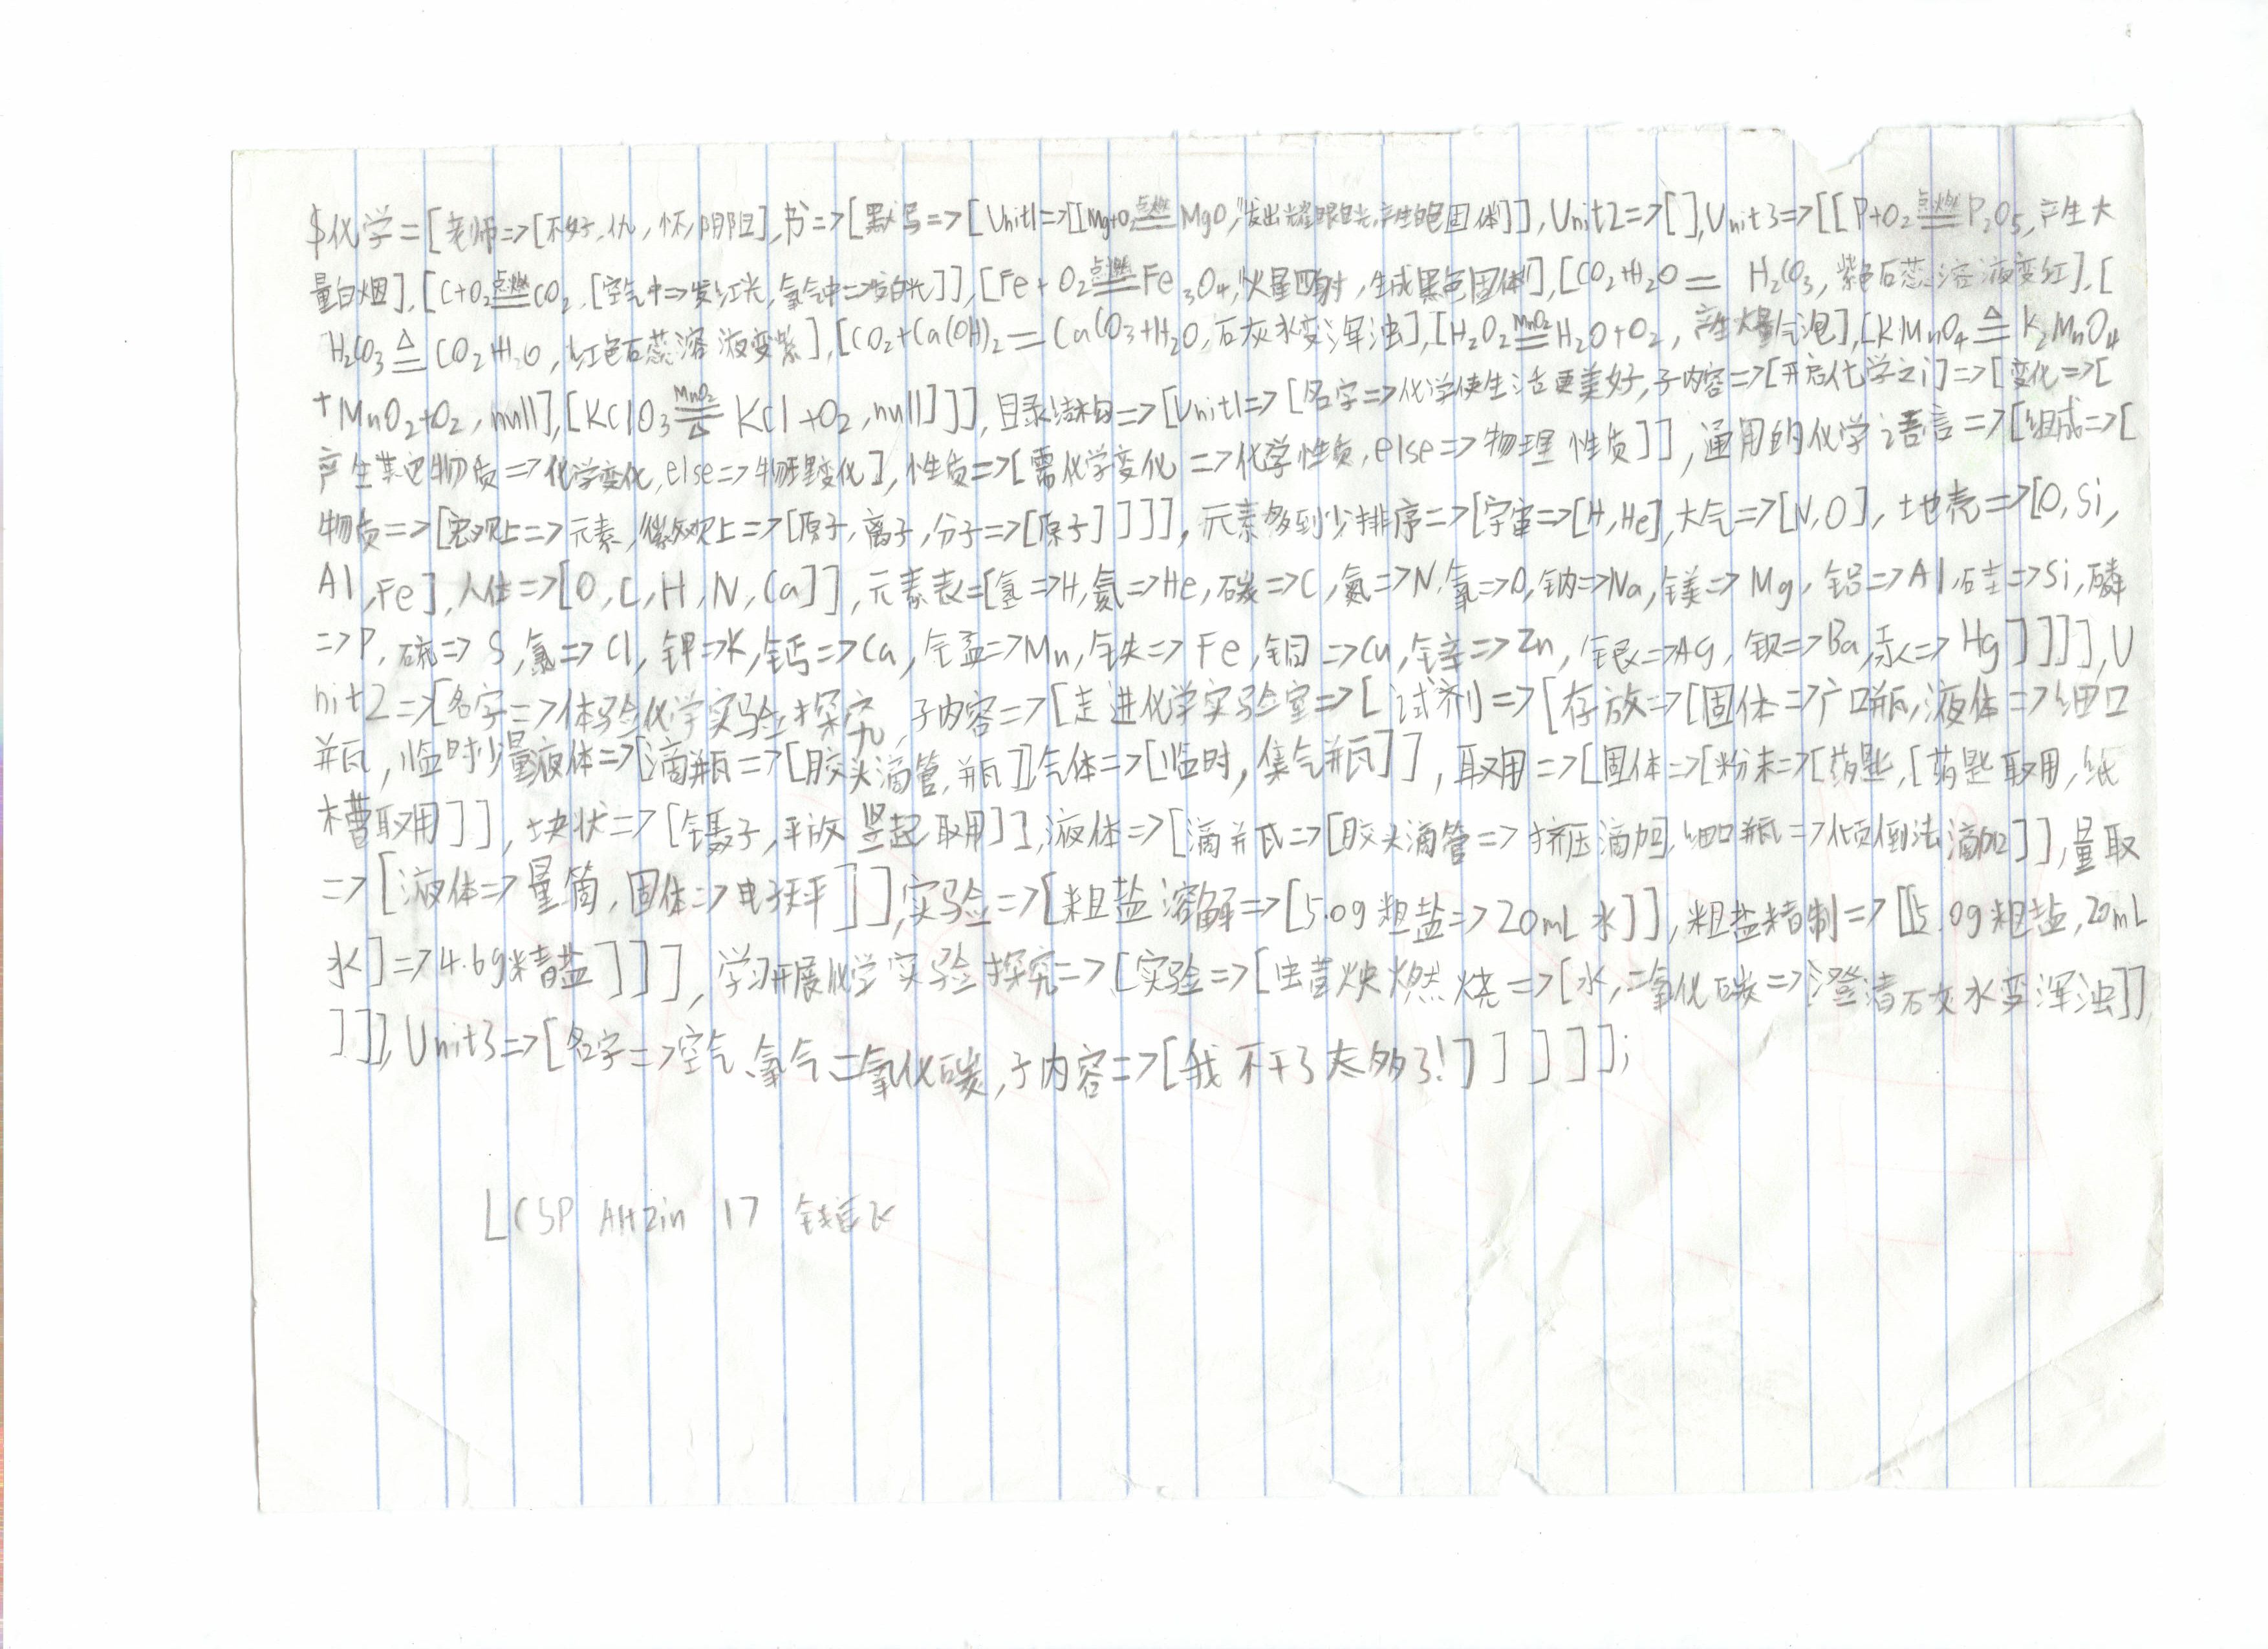 $化学=[老师=>[不好,仇,怀,阴阳],书=>[默写=>[Unit1=>[[Mg+O₂点燃==MgO,发出耀眼白光,产生白色固体]],Unit2=>[],Unit3=>[[P+O₂点燃==P₂O₅,产生大
量白烟],[C+O₂点燃==CO₂,[空气中=>发红光,氧气中=>发白光]],[Fe+O₂点燃==Fe₃O₄,火星四射,生成黑色固体],[CO₂+H₂O== H₂CO₃,紫色石蕊溶液变红],[
H₂CO₃△==CO₂+H₂O,红色石蕊溶液变紫],[CO₂+Ca(OH)₂==CaCO₃+H₂O,石灰水变浑浊],[H₂O₂MnO₂==H₂O+O₂,产生大量气泡],[KMnO₄△==K₂MnO₄
+MnO₂+O₂,null],[KClO₃MnO₂==△KCl+O₂,null]]],目录结构=>[Unit1=>[名字=>化学使生活更美好,子内容=>[开启化学之门=>[变化=>[
产生其他物质=>化学变化,else=>物理变化],性质=>[需化学变化=>化学性质,else=>物理性质]],通用的化学语言=>[组成=>[
物质=>[宏观上=>元素,微观上=>[原子,离子,分子=>[原子]]]],元素多到少排序=>[宇宙=>[H,He],大气=>[N,O],土地壳=>[O,Si,
Al,Fe],人体=>[O,C,H,N,Ca]],元素表=[氢=>H,氦=>He,碳=>C,氮=>N,氧=>O,钠=>Na,镁=>Mg,铝=>Al,硅=>Si,磷
=>P,硫=>S,氯=>Cl,钾=>K,钙=>Ca,锰=>Mn,铁=>Fe,铜=>Cu,锌=>Zn,银=>Ag,钡=>Ba,汞=>Hg]]]],U
nit2=>[名字=>体验化学实验探究,子内容=>[走进化学实验室=>[试剂=>[存放=>[固体=>广口瓶,液体=>细口
瓶,临时少量液体=>[滴瓶=>[胶头滴管,瓶]]气体=>[临时,集气瓶]],取用=>[固体=>[粉末=>[药匙,[药匙取用,纸
槽取用]],块状=>[镊子,平放竖起取用]],液体=>[滴瓶=>[胶头滴管=>挤压滴加],细口瓶=>倾倒法滴加]],量取
=>[液体=>量筒,固体=>电子天平]],实验=>[粗盐溶解=>[5.0g粗盐=>20mL水]],粗盐精制=>[[5.0g粗盐,20mL
水]=>4.6g精盐]]],学习开展化学实验探究=>[实验=>[虫苣炔燃烧=>[水,二氧化碳=>澄清石灰水变浑浊]]
]]],Unit3=>[名字=>空气、氧气二氧化碳,子内容=>[我不干了太多了!]]]]];
LCSP AHzin 17